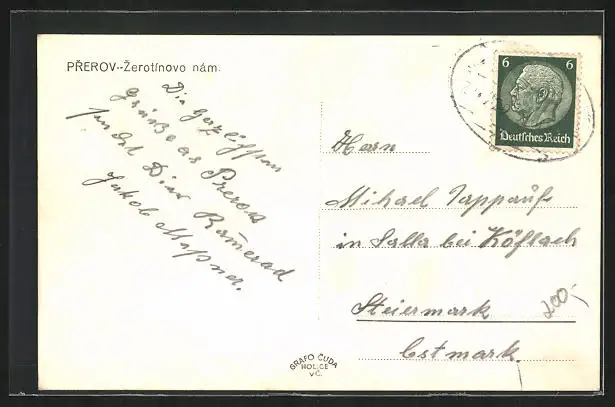 PŘEROV--Žerotínovo nám.
Die herzlichsten
Grüße as Prerow
sendet Dein Kamerad
Jakob Maßner.
6 6
Deutsches Reich
Herrn
Mihael Tappauf
in Salla bei Köflach
Steiermark
Ostmark.
200.-
GRAFO ČUDA
HOLICE
V Č.